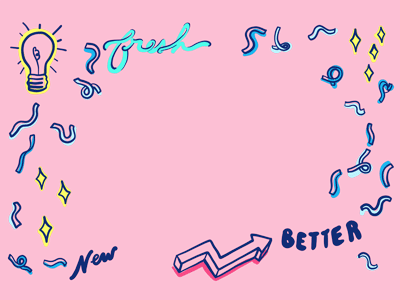 fresh
New
BETTER